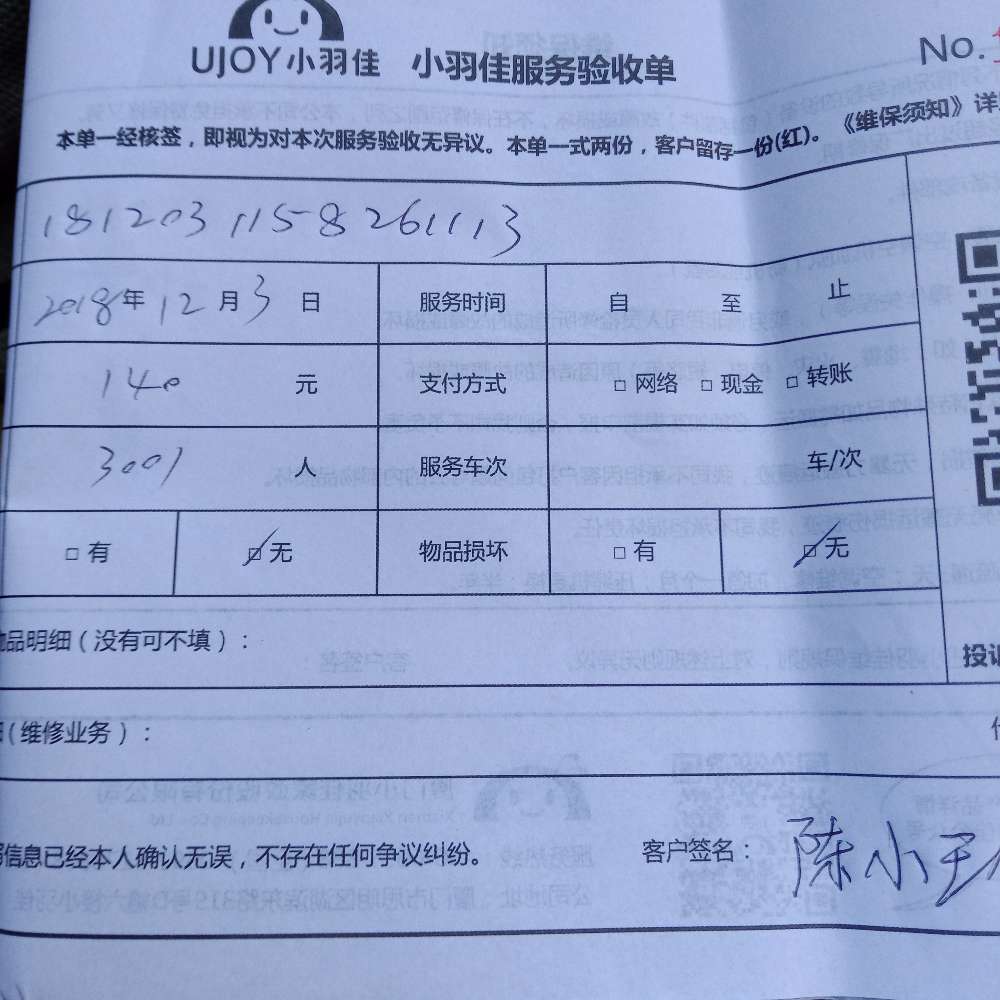 UJOY小羽佳 小羽佳服务验收单 No.
本单一经核签，即视为对本次服务验收无异议。本单一式两份，客户留存一份(红)。《维保须知》详
181203 1158 261113
2018年 12月3日 服务时间 自 至 止
140 元 支付方式 □ 网络 □ 现金 □ 转账
3001 人 服务车次 车/次
□ 有 ☑ 无 物品损坏 □ 有 ☑ 无
品明细（没有可不填）：
投诉
（维修业务）：
信息已经本人确认无误，不存在任何争议纠纷。 客户签名： 陈小